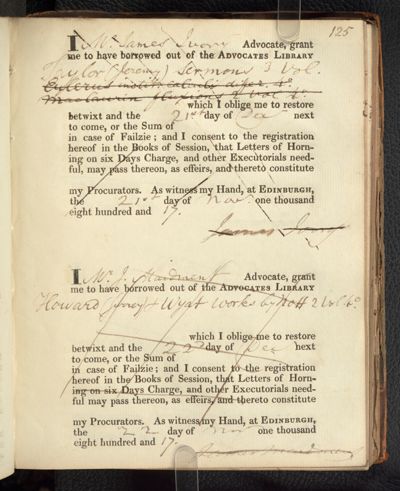 125
I Mr. James Ivory Advocate, grant
me to have borrowed out of the ADVOCATES LIBRARY
Taylor (Jeremy) Sermons 3 Vol.
Eulerus instit. calculi differ. 4o.
Maclaurin fluxions 2 Vol. 4o.
which I oblige me to restore
betwixt and the 21st day of Dec next
to come, or the Sum of
in case of Failzie; and I consent to the registration
hereof in the Books of Session, that Letters of Horn-
ing on six Days Charge, and other Executorials need-
ful, may pass thereon, as effeirs, and thereto constitute
my Procurators. As witness my Hand, at EDINBURGH,
the 21st day of Nov. one thousand
eight hundred and 17.
James Ivory
I Mr. J. Maidment Advocate, grant
me to have borrowed out of the ADVOCATES LIBRARY
Howard & Wyat Works by Nott 2 Vol. 4o.
which I oblige me to restore
betwixt and the 22d day of Dec next
to come, or the Sum of
in case of Failzie; and I consent to the registration
hereof in the Books of Session, that Letters of Horn-
ing on six Days Charge, and other Executorials need-
ful may pass thereon, as effeirs, and thereto constitute
my Procurators. As witness my Hand, at EDINBURGH,
the 22 day of Nov one thousand
eight hundred and 17.
James Maidment